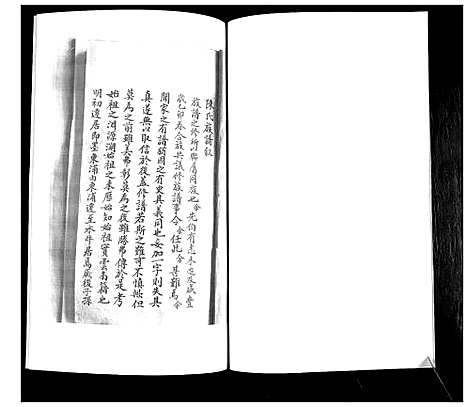 陳氏族譜叙
族譜之修所以聯屬同族也余先伯有志未迨及咸豐
歲乙卯春合族共議修族譜事令余任此余其難焉余
聞家之有譜猶國之有史其義同也妄加一字則失其
真遂無以取信於後蓋修譜若斯之難可不慎與但
莫為之前雖美弗彰莫為之後雖勝弗傳於是考
始祖之淵源溯始祖之來歷始知始祖實雲南籍也
明初遷居即墨東蒲山東浦遷至水牛居焉厥後子孫